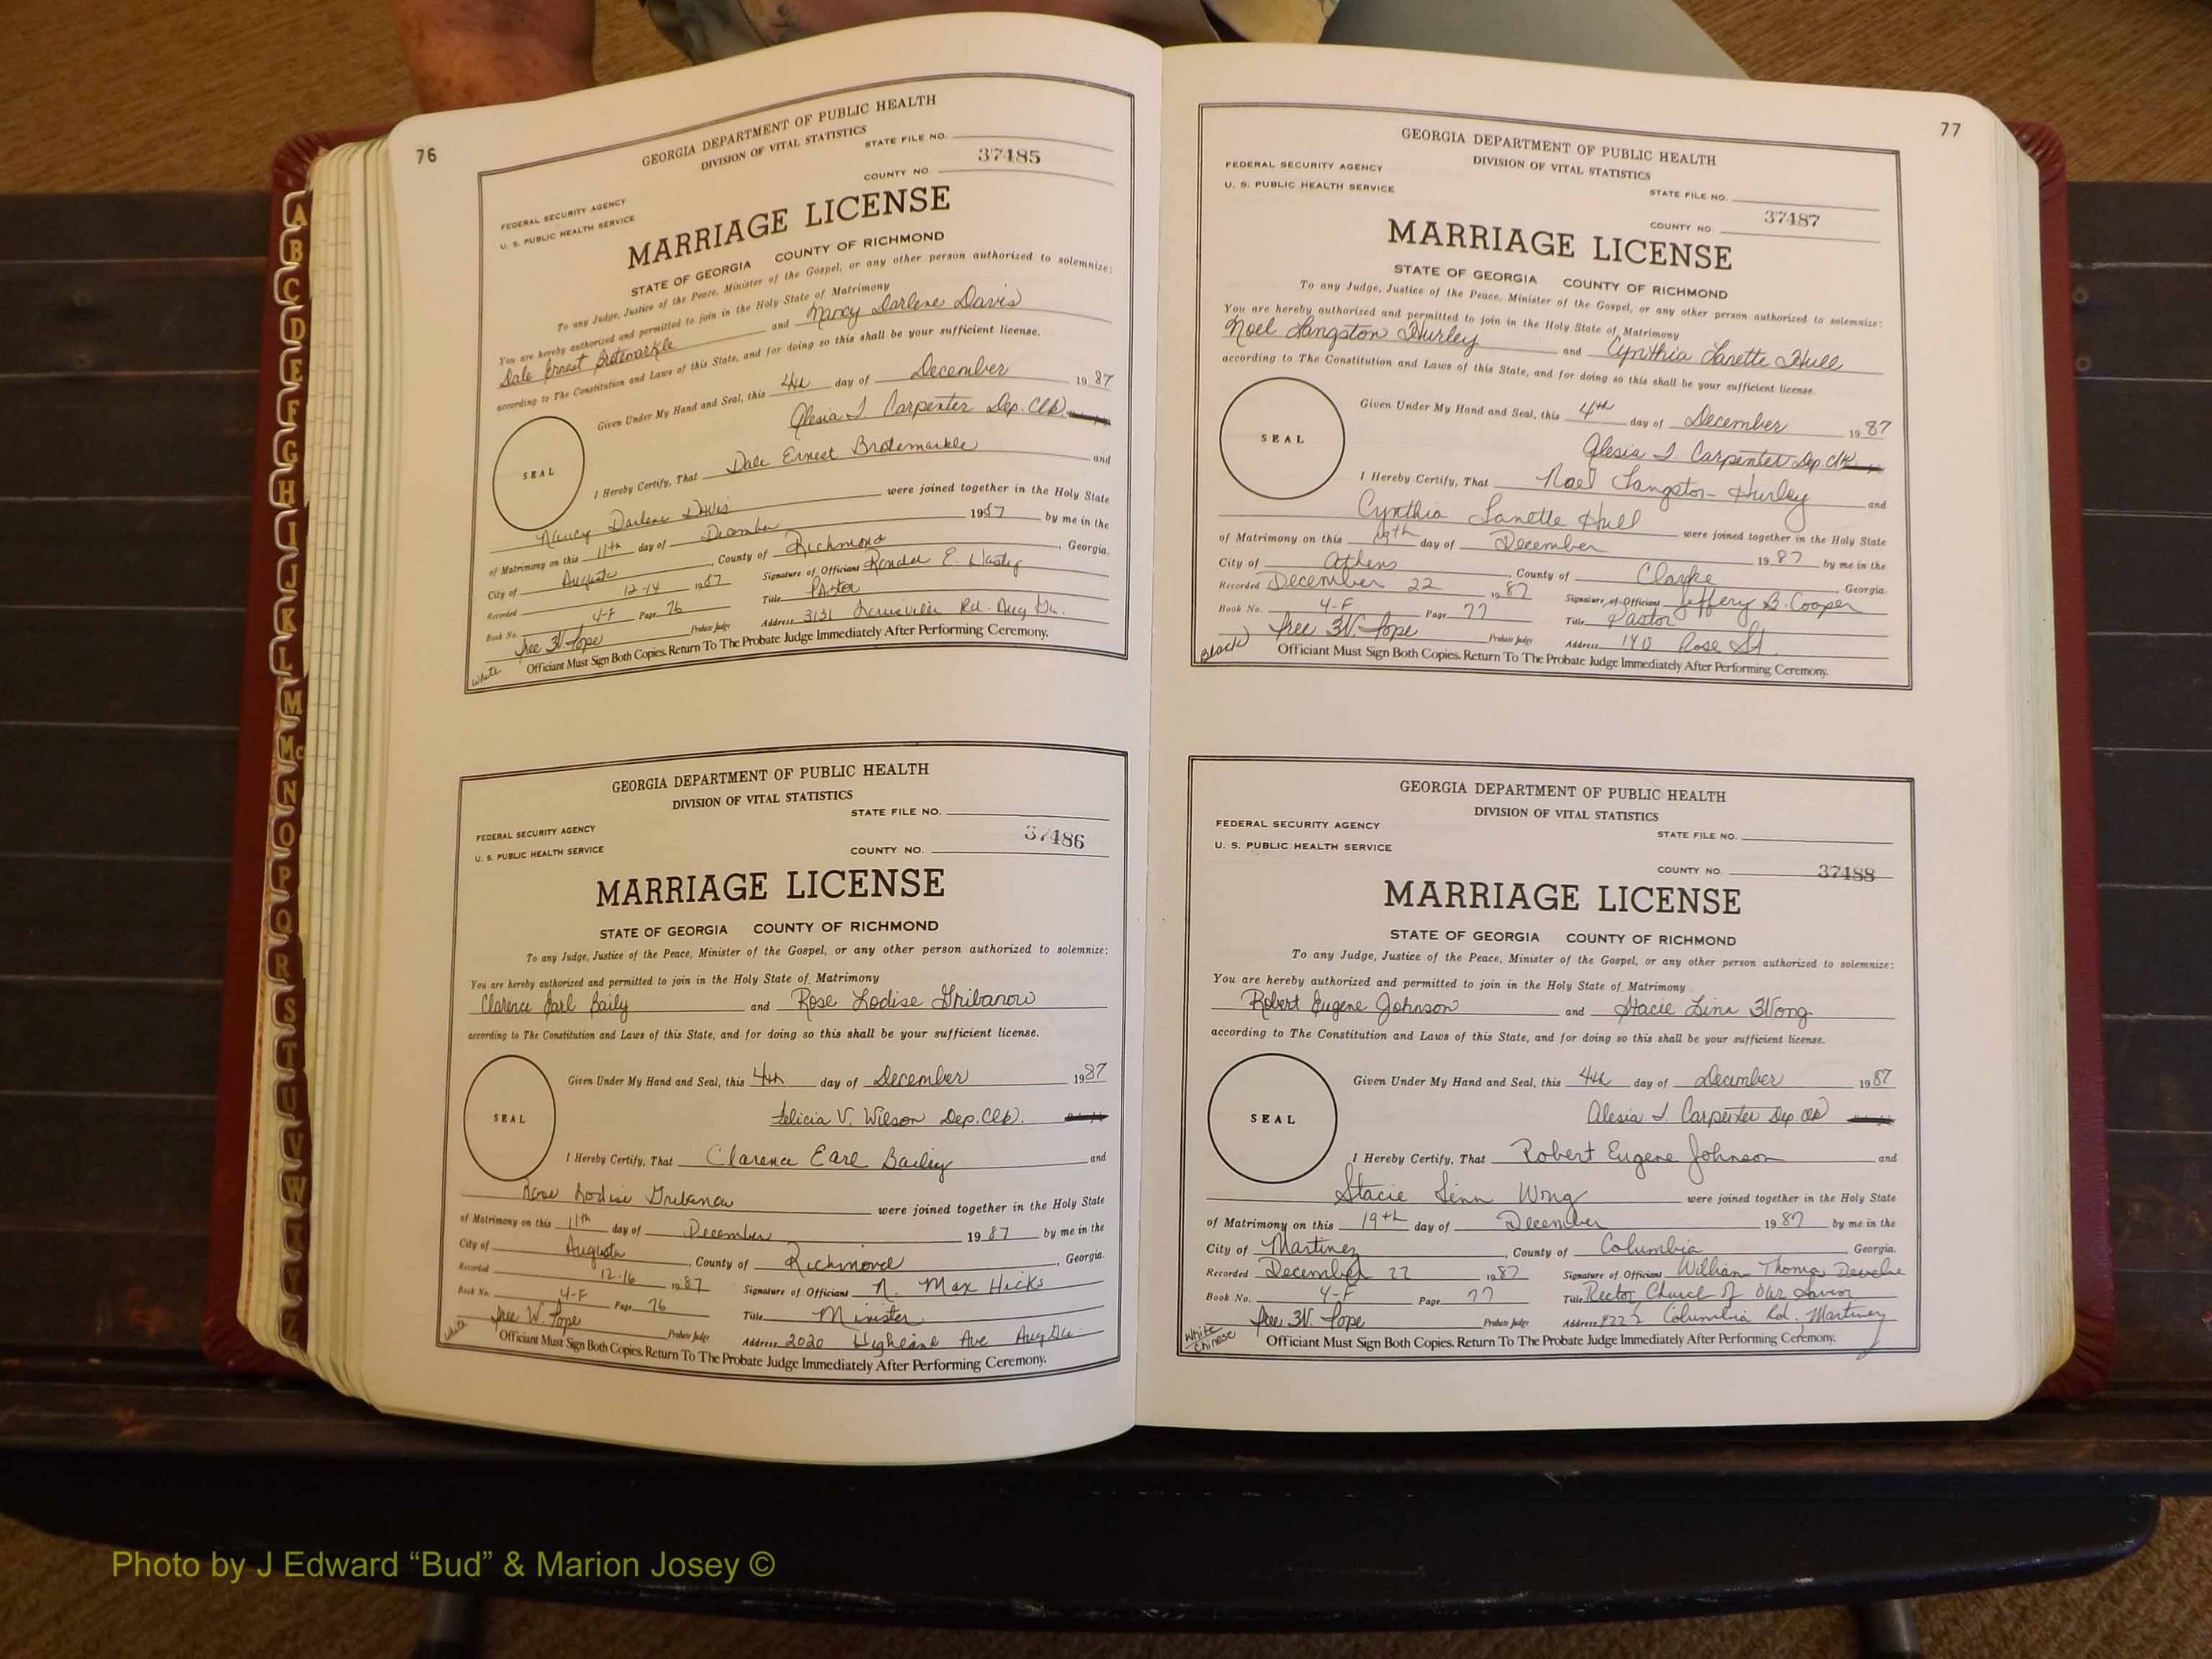 76
GEORGIA DEPARTMENT OF PUBLIC HEALTH
DIVISION OF VITAL STATISTICS
STATE FILE NO.
37485
COUNTY NO.
FEDERAL SECURITY AGENCY
U. S. PUBLIC HEALTH SERVICE
MARRIAGE LICENSE
STATE OF GEORGIA COUNTY OF RICHMOND
To any Judge, Justice of the Peace, Minister of the Gospel, or any other person authorized to solemnize:
You are hereby authorized and permitted to join in the Holy State of Matrimony
Dale Ernest Brotemarkle and Nancy Darlene Davis
according to The Constitution and Laws of this State, and for doing so this shall be your sufficient license.
Given Under My Hand and Seal, this 4th day of December 1987
Alesia J. Carpenter Dep. Clk.
SEAL
I Hereby Certify, That Dale Ernest Brotemarkle and
Nancy Darlene Davis were joined together in the Holy State
of Matrimony on this 11th day of December 1987 by me in the
City of Augusta, County of Richmond, Georgia.
Recorded 12-14 1987 Signature of Officiant E.
Book No. 4-F Page 76 Title Pastor
Probate Judge Address 3131 Louisville Rd. Aug Ga.
White Officiant Must Sign Both Copies. Return To The Probate Judge Immediately After Performing Ceremony.
GEORGIA DEPARTMENT OF PUBLIC HEALTH
DIVISION OF VITAL STATISTICS
STATE FILE NO.
FEDERAL SECURITY AGENCY
37486
U. S. PUBLIC HEALTH SERVICE
COUNTY NO.
MARRIAGE LICENSE
STATE OF GEORGIA COUNTY OF RICHMOND
To any Judge, Justice of the Peace, Minister of the Gospel, or any other person authorized to solemnize:
You are hereby authorized and permitted to join in the Holy State of Matrimony
Clarence Earl Baily and Rose Lodise Gribanow
according to The Constitution and Laws of this State, and for doing so this shall be your sufficient license.
Given Under My Hand and Seal, this 4th day of December 1987
Felicia V. Wilson Dep. Clk.
SEAL
I Hereby Certify, That Clarence Earl Bailey and
Rose Lodise Gribanow were joined together in the Holy State
of Matrimony on this 11th day of December 1987 by me in the
City of Augusta, County of Richmond, Georgia.
Recorded 12-16 1987 Signature of Officiant N. Max Hicks
Book No. 4-F Page 76 Title Minister
Probate Judge Address 2020 Highland Ave Aug Ga
White Officiant Must Sign Both Copies. Return To The Probate Judge Immediately After Performing Ceremony.
77
GEORGIA DEPARTMENT OF PUBLIC HEALTH
DIVISION OF VITAL STATISTICS
FEDERAL SECURITY AGENCY
U. S. PUBLIC HEALTH SERVICE
STATE FILE NO.
37487
COUNTY NO.
MARRIAGE LICENSE
STATE OF GEORGIA COUNTY OF RICHMOND
To any Judge, Justice of the Peace, Minister of the Gospel, or any other person authorized to solemnize:
You are hereby authorized and permitted to join in the Holy State of Matrimony
Noel Langston Hurley and Cynthia Lanette Hull
according to The Constitution and Laws of this State, and for doing so this shall be your sufficient license.
Given Under My Hand and Seal, this 4th day of December 1987
Alesia J Carpenter Dep. Clk
SEAL
I Hereby Certify, That Noel Langston Hurley and
Cynthia Lanette Hull were joined together in the Holy State
of Matrimony on this 19th day of December 1987 by me in the
City of Athens, County of Clarke, Georgia.
Recorded December 22 1987 Signature of Officiant Jeffery B. Cooper
Book No. 4-F Page 77 Title Pastor
Probate Judge Address 140 Rose St.
Black Officiant Must Sign Both Copies. Return To The Probate Judge Immediately After Performing Ceremony.
GEORGIA DEPARTMENT OF PUBLIC HEALTH
DIVISION OF VITAL STATISTICS
FEDERAL SECURITY AGENCY
STATE FILE NO.
U. S. PUBLIC HEALTH SERVICE
COUNTY NO. 37488
MARRIAGE LICENSE
STATE OF GEORGIA COUNTY OF RICHMOND
To any Judge, Justice of the Peace, Minister of the Gospel, or any other person authorized to solemnize:
You are hereby authorized and permitted to join in the Holy State of Matrimony
Robert Eugene Johnson and Stacie Linn Wong
according to The Constitution and Laws of this State, and for doing so this shall be your sufficient license.
Given Under My Hand and Seal, this 4th day of December 1987
Alesia J. Carpenter Dep. Clk
SEAL
I Hereby Certify, That Robert Eugene Johnson and
Stacie Linn Wong were joined together in the Holy State
of Matrimony on this 19th day of December 1987 by me in the
City of Martinez, County of Columbia, Georgia.
Recorded December 22 1987 Signature of Officiant William Thomas
Book No. 4-F Page 77 Title Rector, Church of Our Savior
Probate Judge Address Columbia Rd. Martinez
White Chinese Officiant Must Sign Both Copies. Return To The Probate Judge Immediately After Performing Ceremony.
A
B
C
D
E
F
G
H
I
J
K
L
M
Mc
N
O
P
Q
R
S
T
U
V
W
X
Y
Z
Photo by J Edward “Bud” & Marion Josey ©